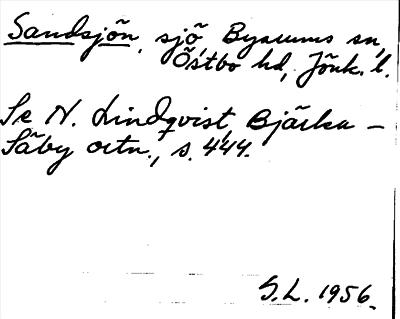 Sandsjön, sjö Byarums sn,
Östbo hd, Jönk. l.
Se N. Lindqvist, Bjärka –
Säby ortn., s. 444.
S.L. 1956.